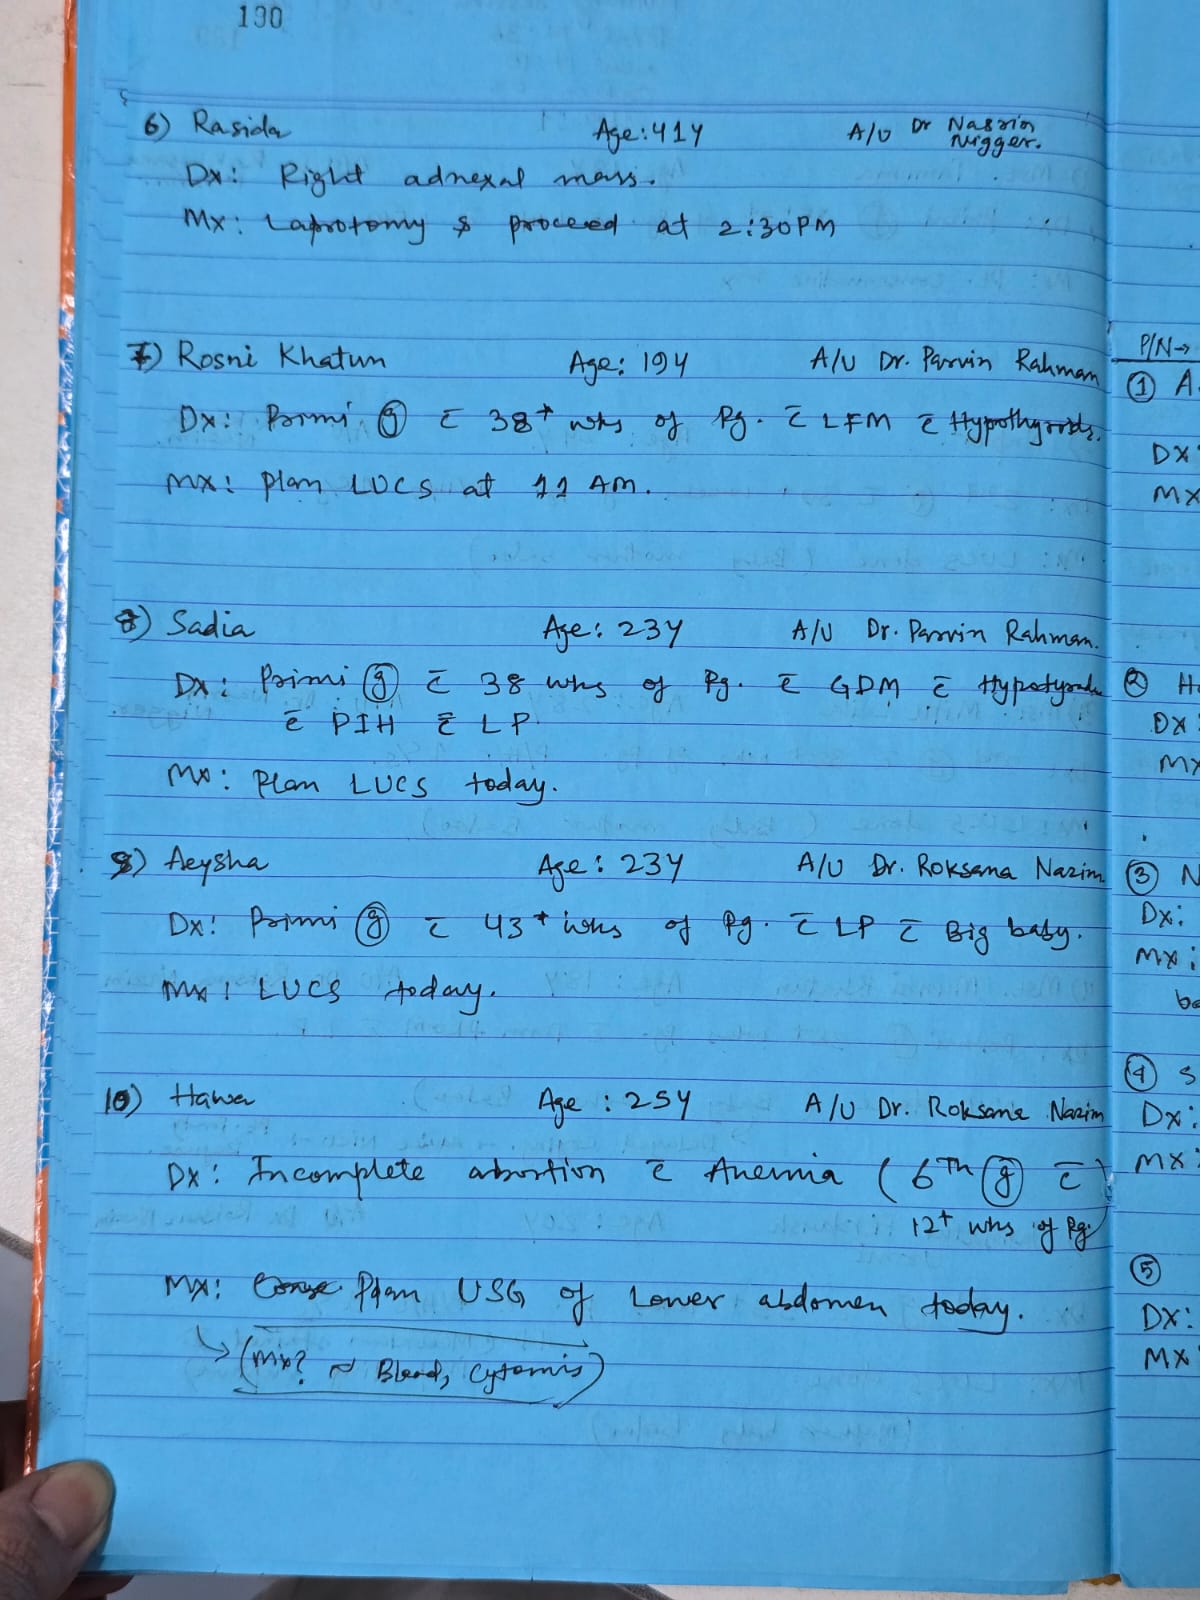 130
6) Rasida Age: 41Y A/U Dr Nasrin Nigger.
Dx: Right adnexal mass.
Mx: Laprotomy & proceed at 2:30PM
7) Rosni Khatun Age: 19Y A/U Dr. Parvin Rahman
P/N→
Dx: Primi g c̄ 38+ wks of Pg. c̄ LFM c̄
① A
Mx: Plan LUCS at 11 AM.
Dx
Mx
8) Sadia Age: 23Y A/U Dr. Parvin Rahman.
Dx: Primi g c̄ 38 wks of Pg. c̄ GDM c̄
② H
c̄ PIH c̄ LP
Dx
Mx: Plan LUCS today.
Mx
9) Aeysha Age: 23Y A/U Dr. Roksana Nazim
③ N
Dx: Primi g c̄ 43+ wks of Pg. c̄ LP c̄ Big baby.
Dx:
Mx: LUCS today.
Mx:
ba
10) Hawa Age: 25Y A/U Dr. Roksana Nazim
④ S
Dx:
Dx: Incomplete abortion c̄ Anemia (6TH g c̄
Mx:
12+ wks of Pg)
Mx: Plan USG of Lower abdomen today.
⑤
Dx:
→ (Mx? Blood, Cytomis)
Mx